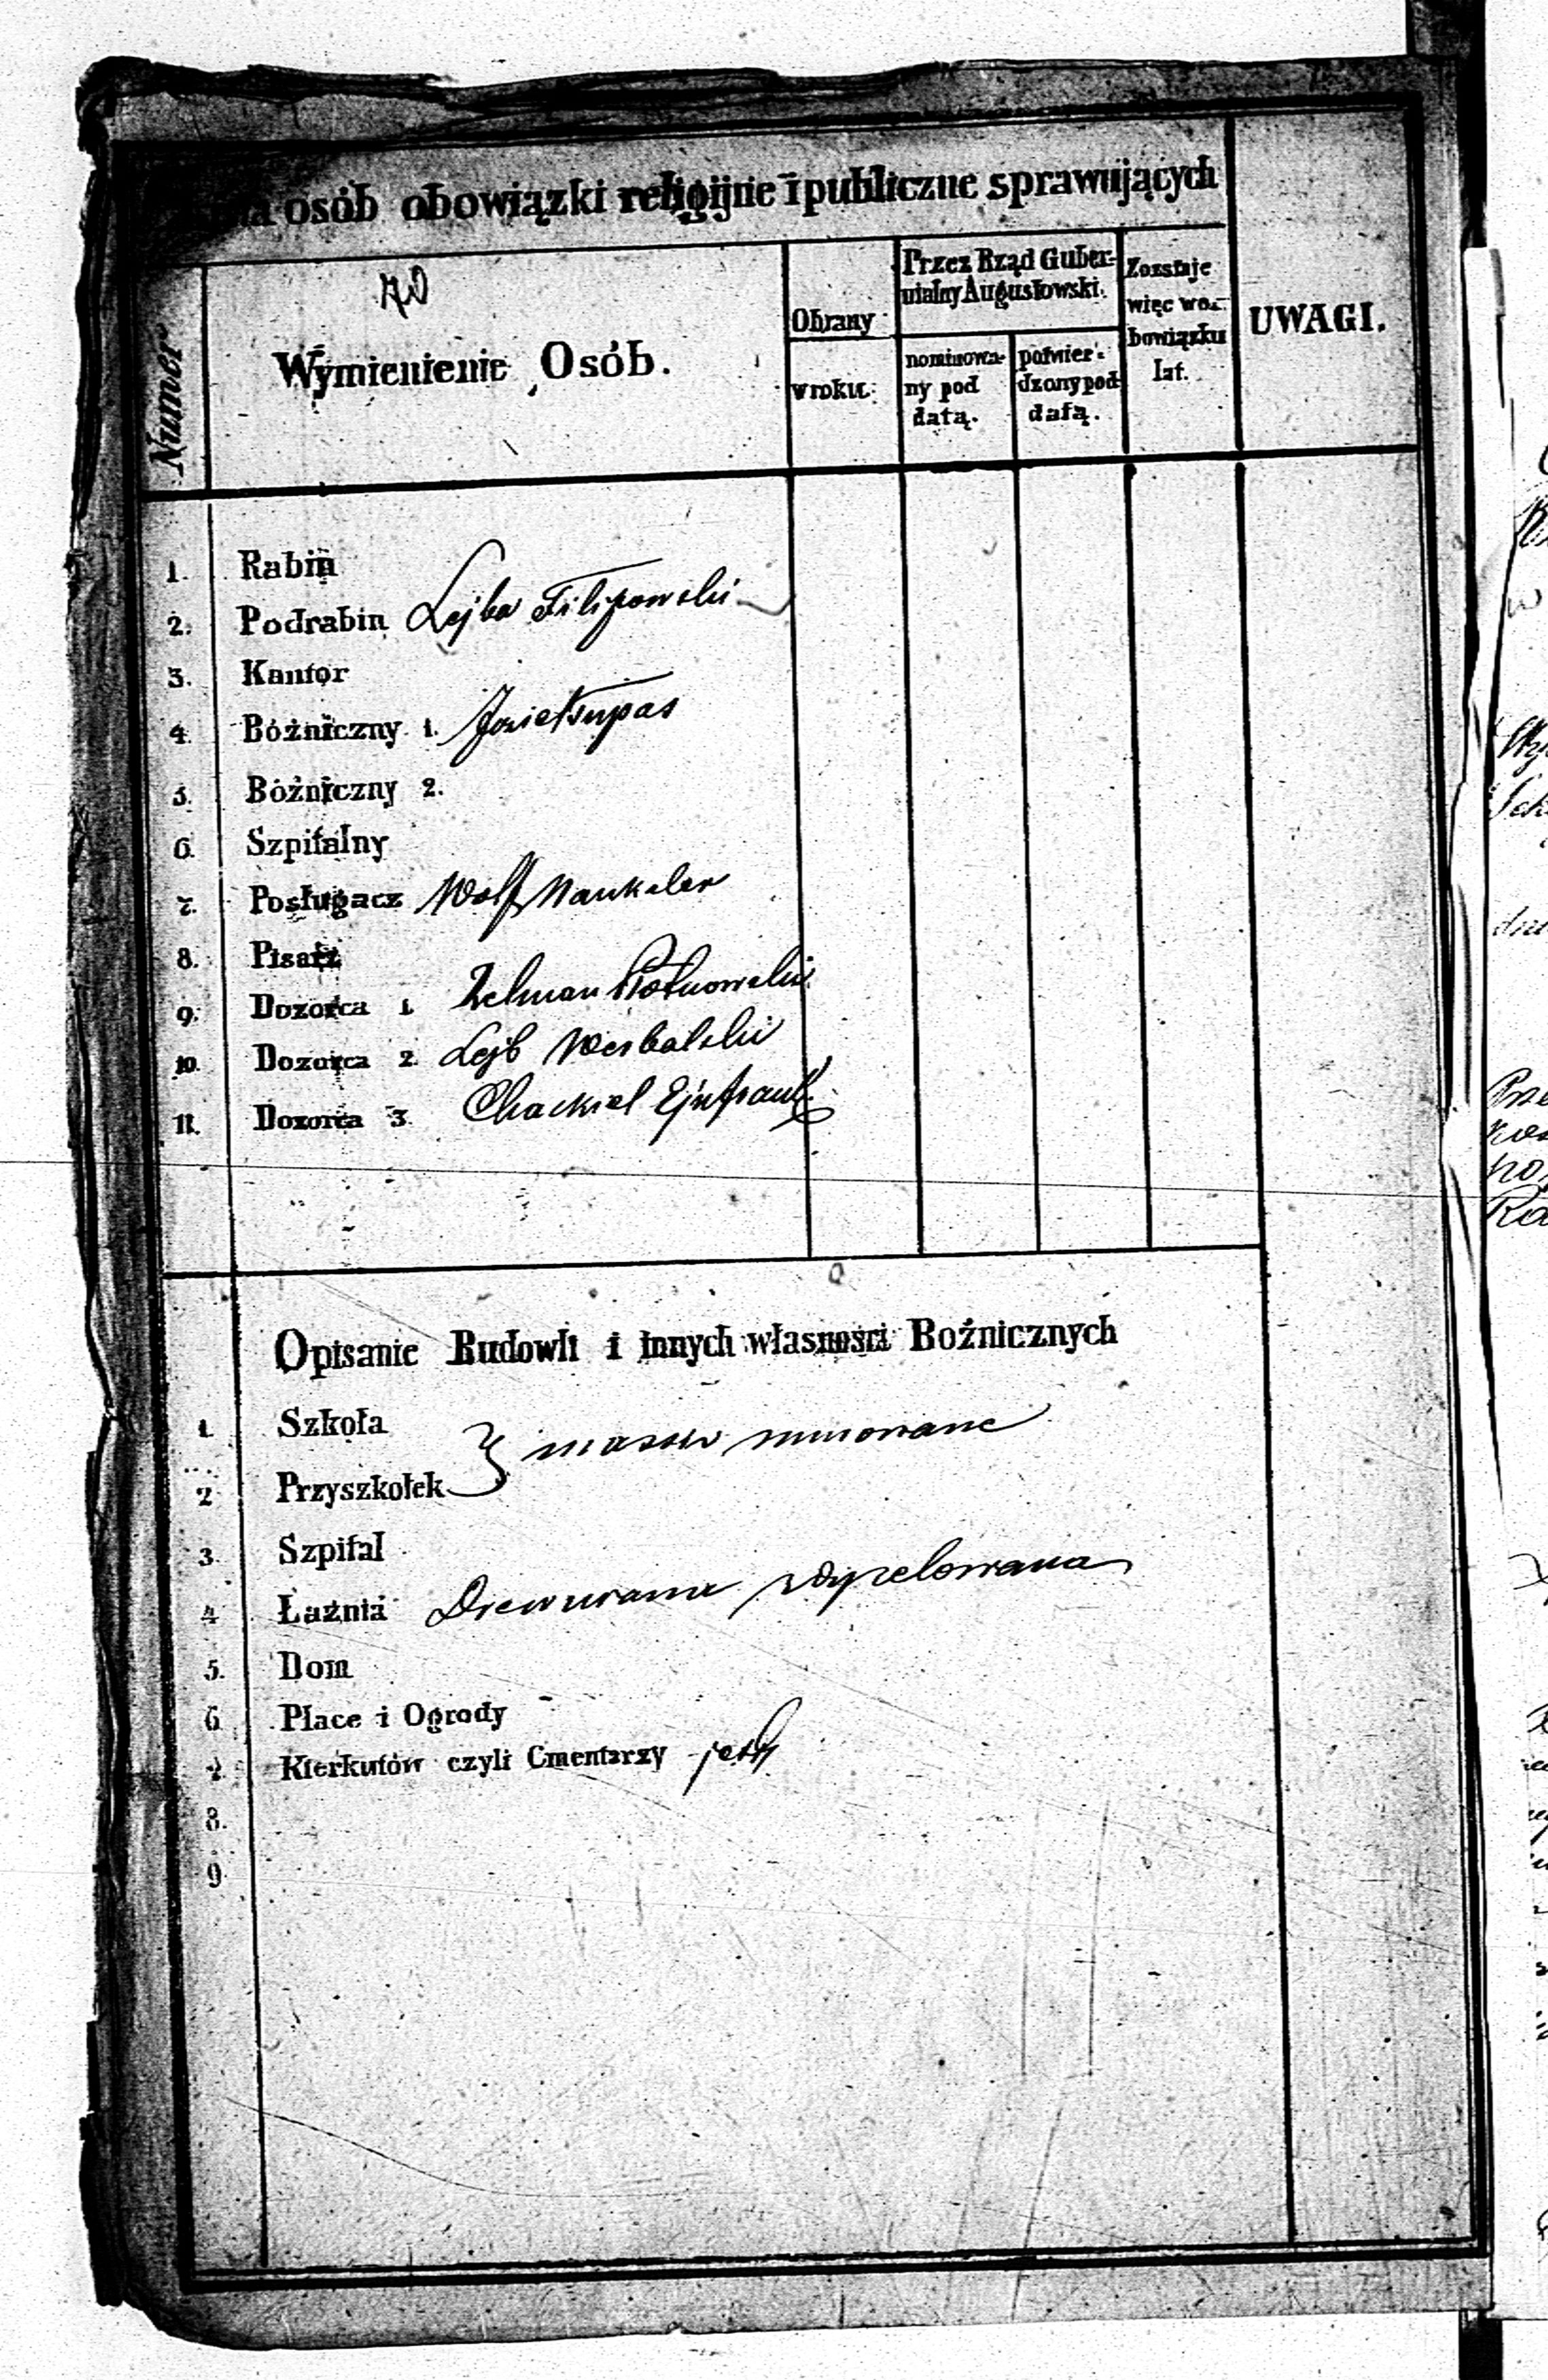 osób obowiązki religijne i publiczne sprawujących
Numer
Wymienienie Osób.
Obrany
w roku.
Przez Rząd Guber-
nialny Augustowski.
nominowa-
ny pod
datą.
potwier-
dzony pod
datą.
Zostaje
więc w o-
bowiązku
lat.
UWAGI.
1. Rabin
2. Podrabin Lejba Filipowski
3. Kantor
4. Bóżniczny 1.
5. Bóżniczny 2.
6. Szpitalny
7. Posługacz Wolf
8. Pisarz
9. Dozorca 1. Zelman
10. Dozorca 2. Lejb Wierbalski
11. Dozorca 3. Chackiel
Opisanie Budowli i innych własności Boźnicznych
1. Szkoła
murowane
2 Przyszkołek
3. Szpital
4 Łaźnia
5. Dom
6 Place i Ogrody
7. Kierkutów czyli Cmentarzy jest
8.
9